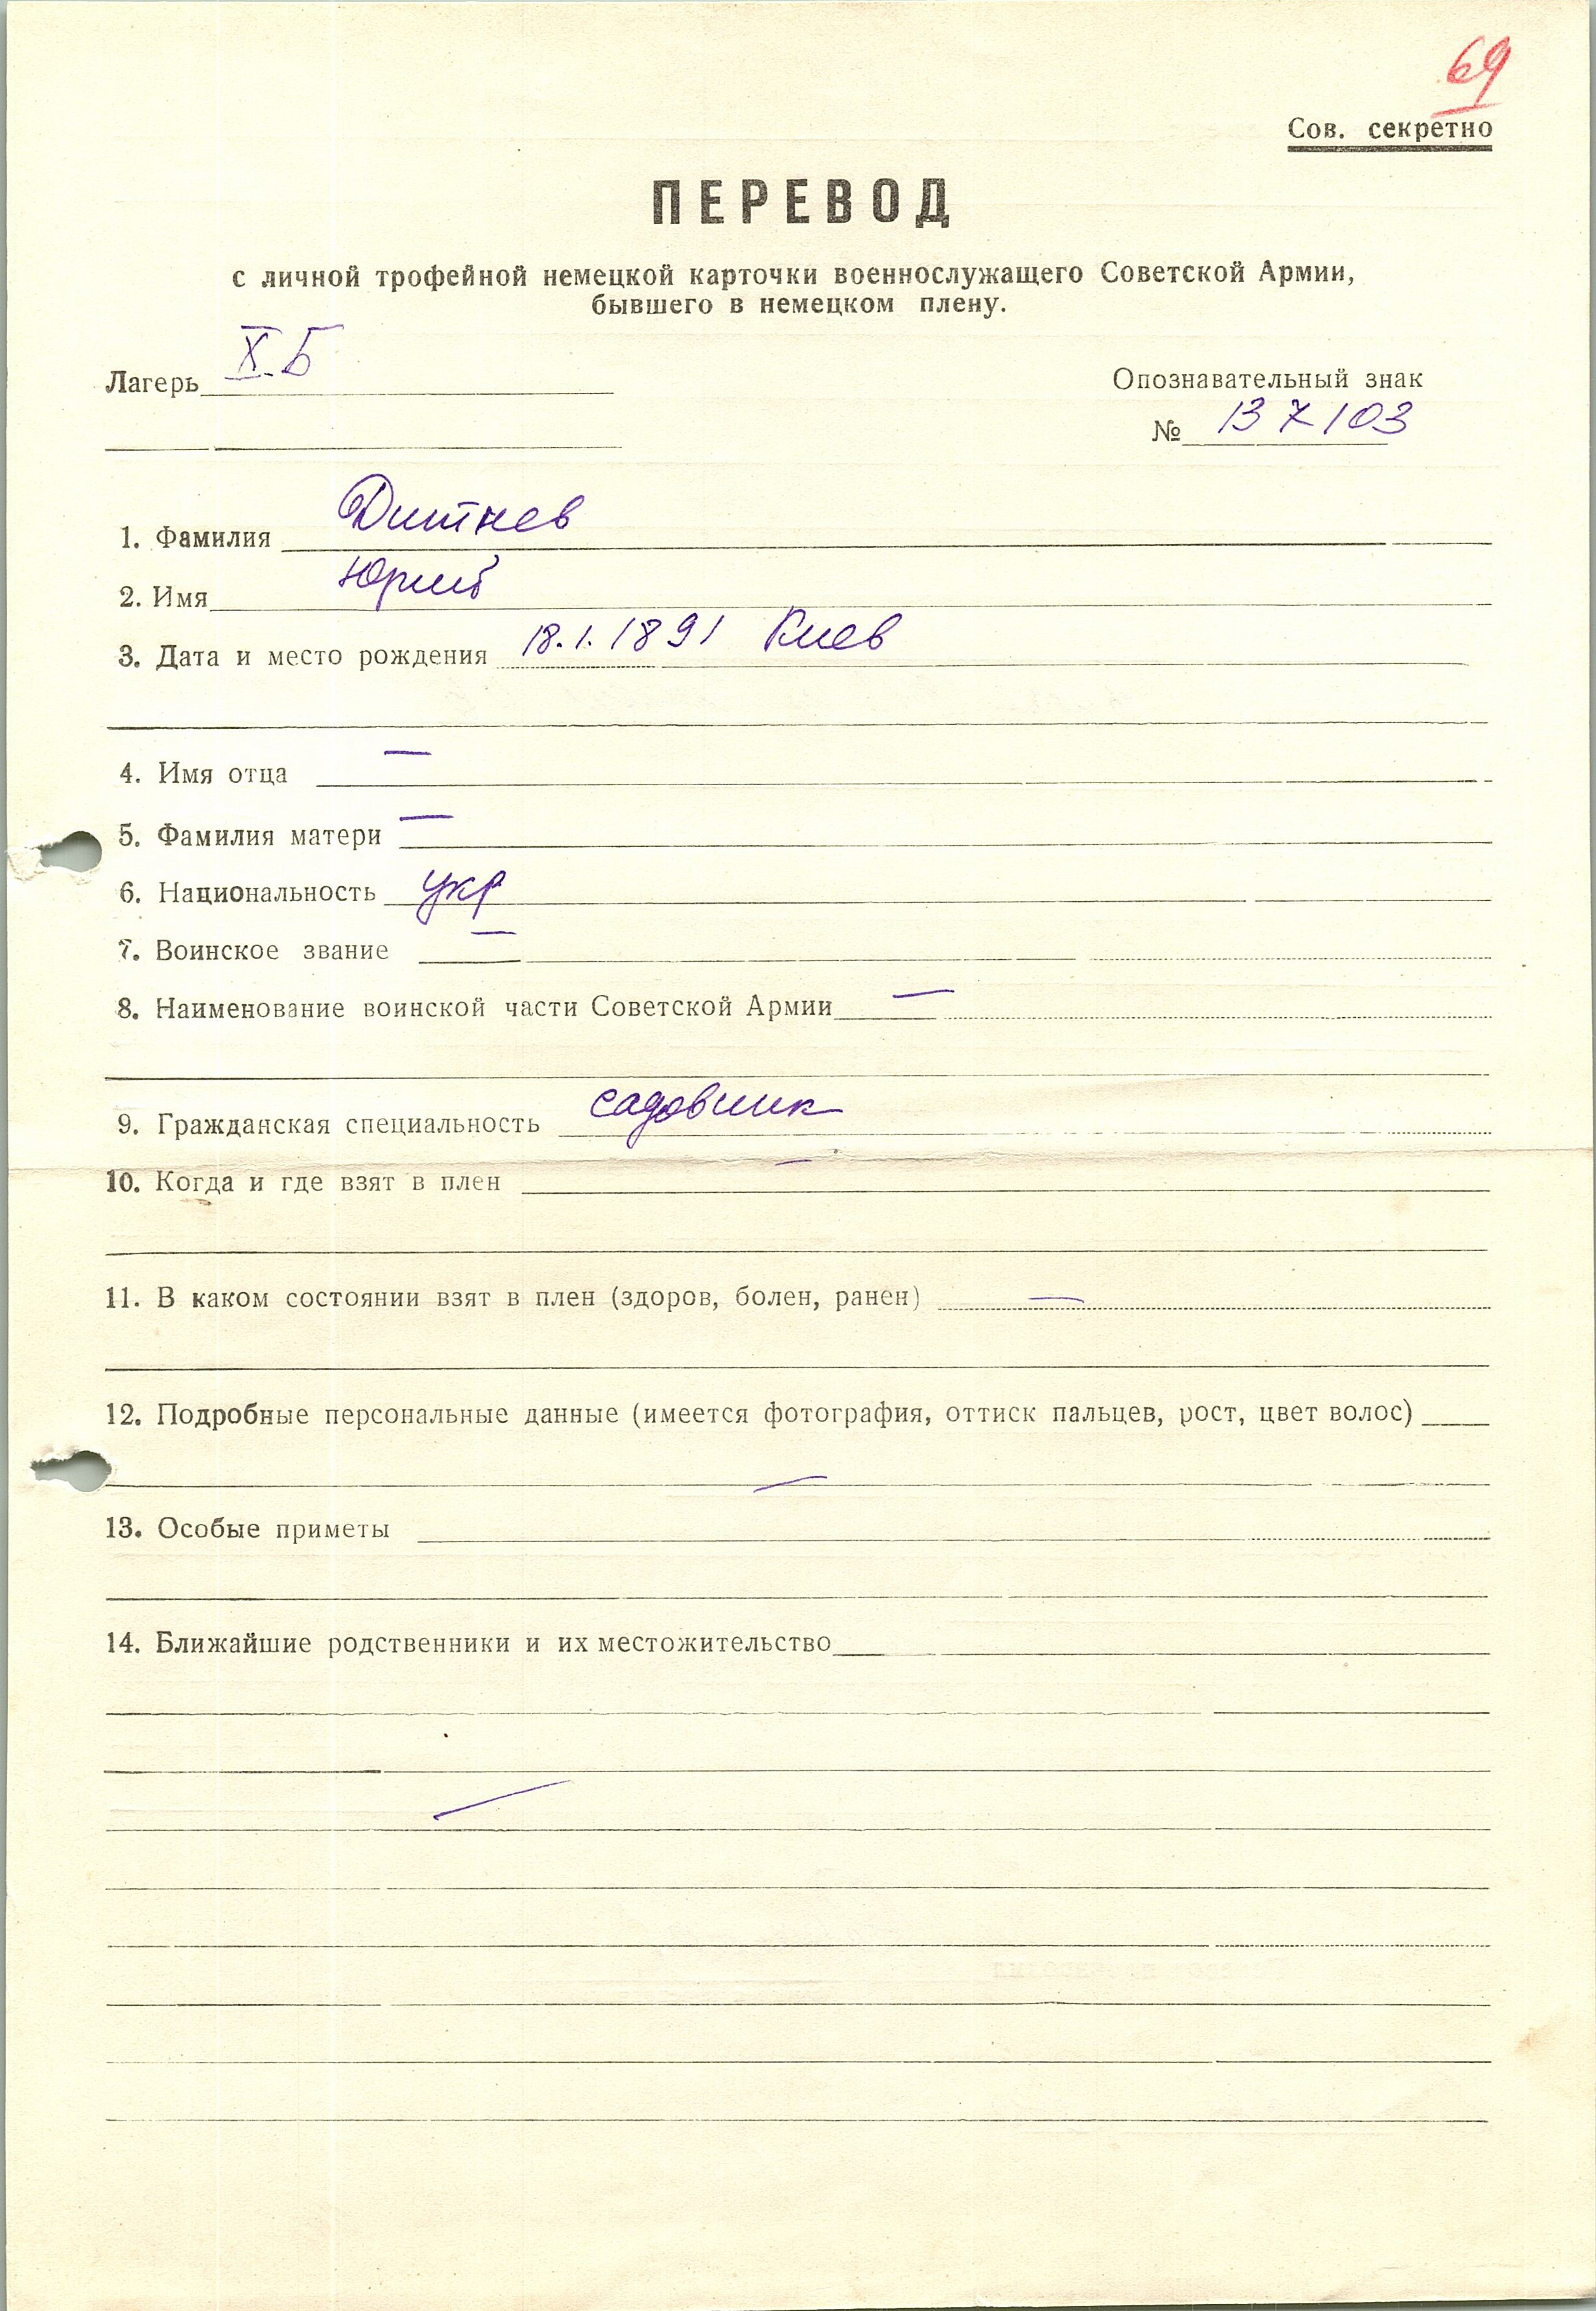 69
Сов. секретно
ПЕРЕВОД
с личной трофейной немецкой карточки военнослужащего Советской Армии,
бывшего в немецком плену.
Лагерь X Б
Опознавательный знак
№ 137103
1. Фамилия Дитнев
2. Имя Юрий
3. Дата и место рождения 18.1.1891 Киев
4. Имя отца —
5. Фамилия матери —
6. Национальность укр
7. Воинское звание —
8. Наименование воинской части Советской Армии —
9. Гражданская специальность садовник
10. Когда и где взят в плен —
11. В каком состоянии взят в плен (здоров, болен, ранен) —
12. Подробные персональные данные (имеется фотография, оттиск пальцев, рост, цвет волос)
—
13. Особые приметы
14. Ближайшие родственники и их местожительство
—